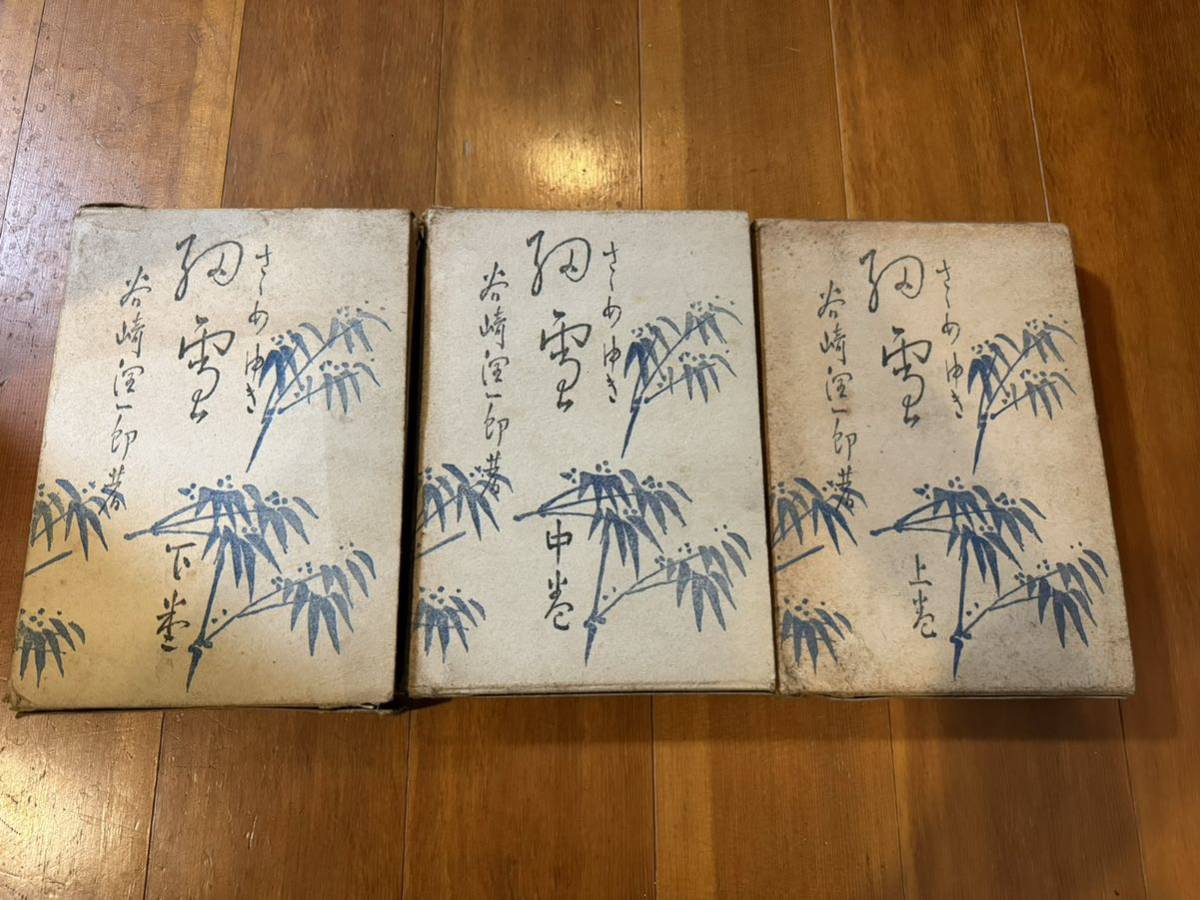 さゝめゆき
細雪
谷崎潤一郎著
上巻
さゝめゆき
細雪
谷崎潤一郎著
中巻
さゝめゆき
細雪
谷崎潤一郎著
下巻